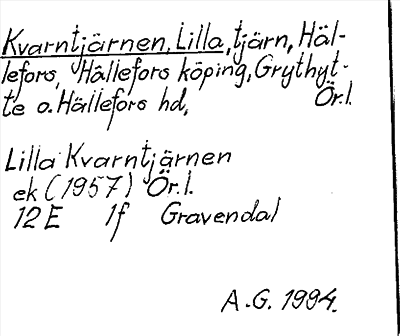 Kvarntjärnen, Lilla, tjärn, Häl-
lefors, Hällefors köping, Grythyt-
te o. Hällefors hd, Ör.l.
Lilla Kvarntjärnen
ek (1957) Ör.l.
12 E 1f Gravendal
A.G. 1994.